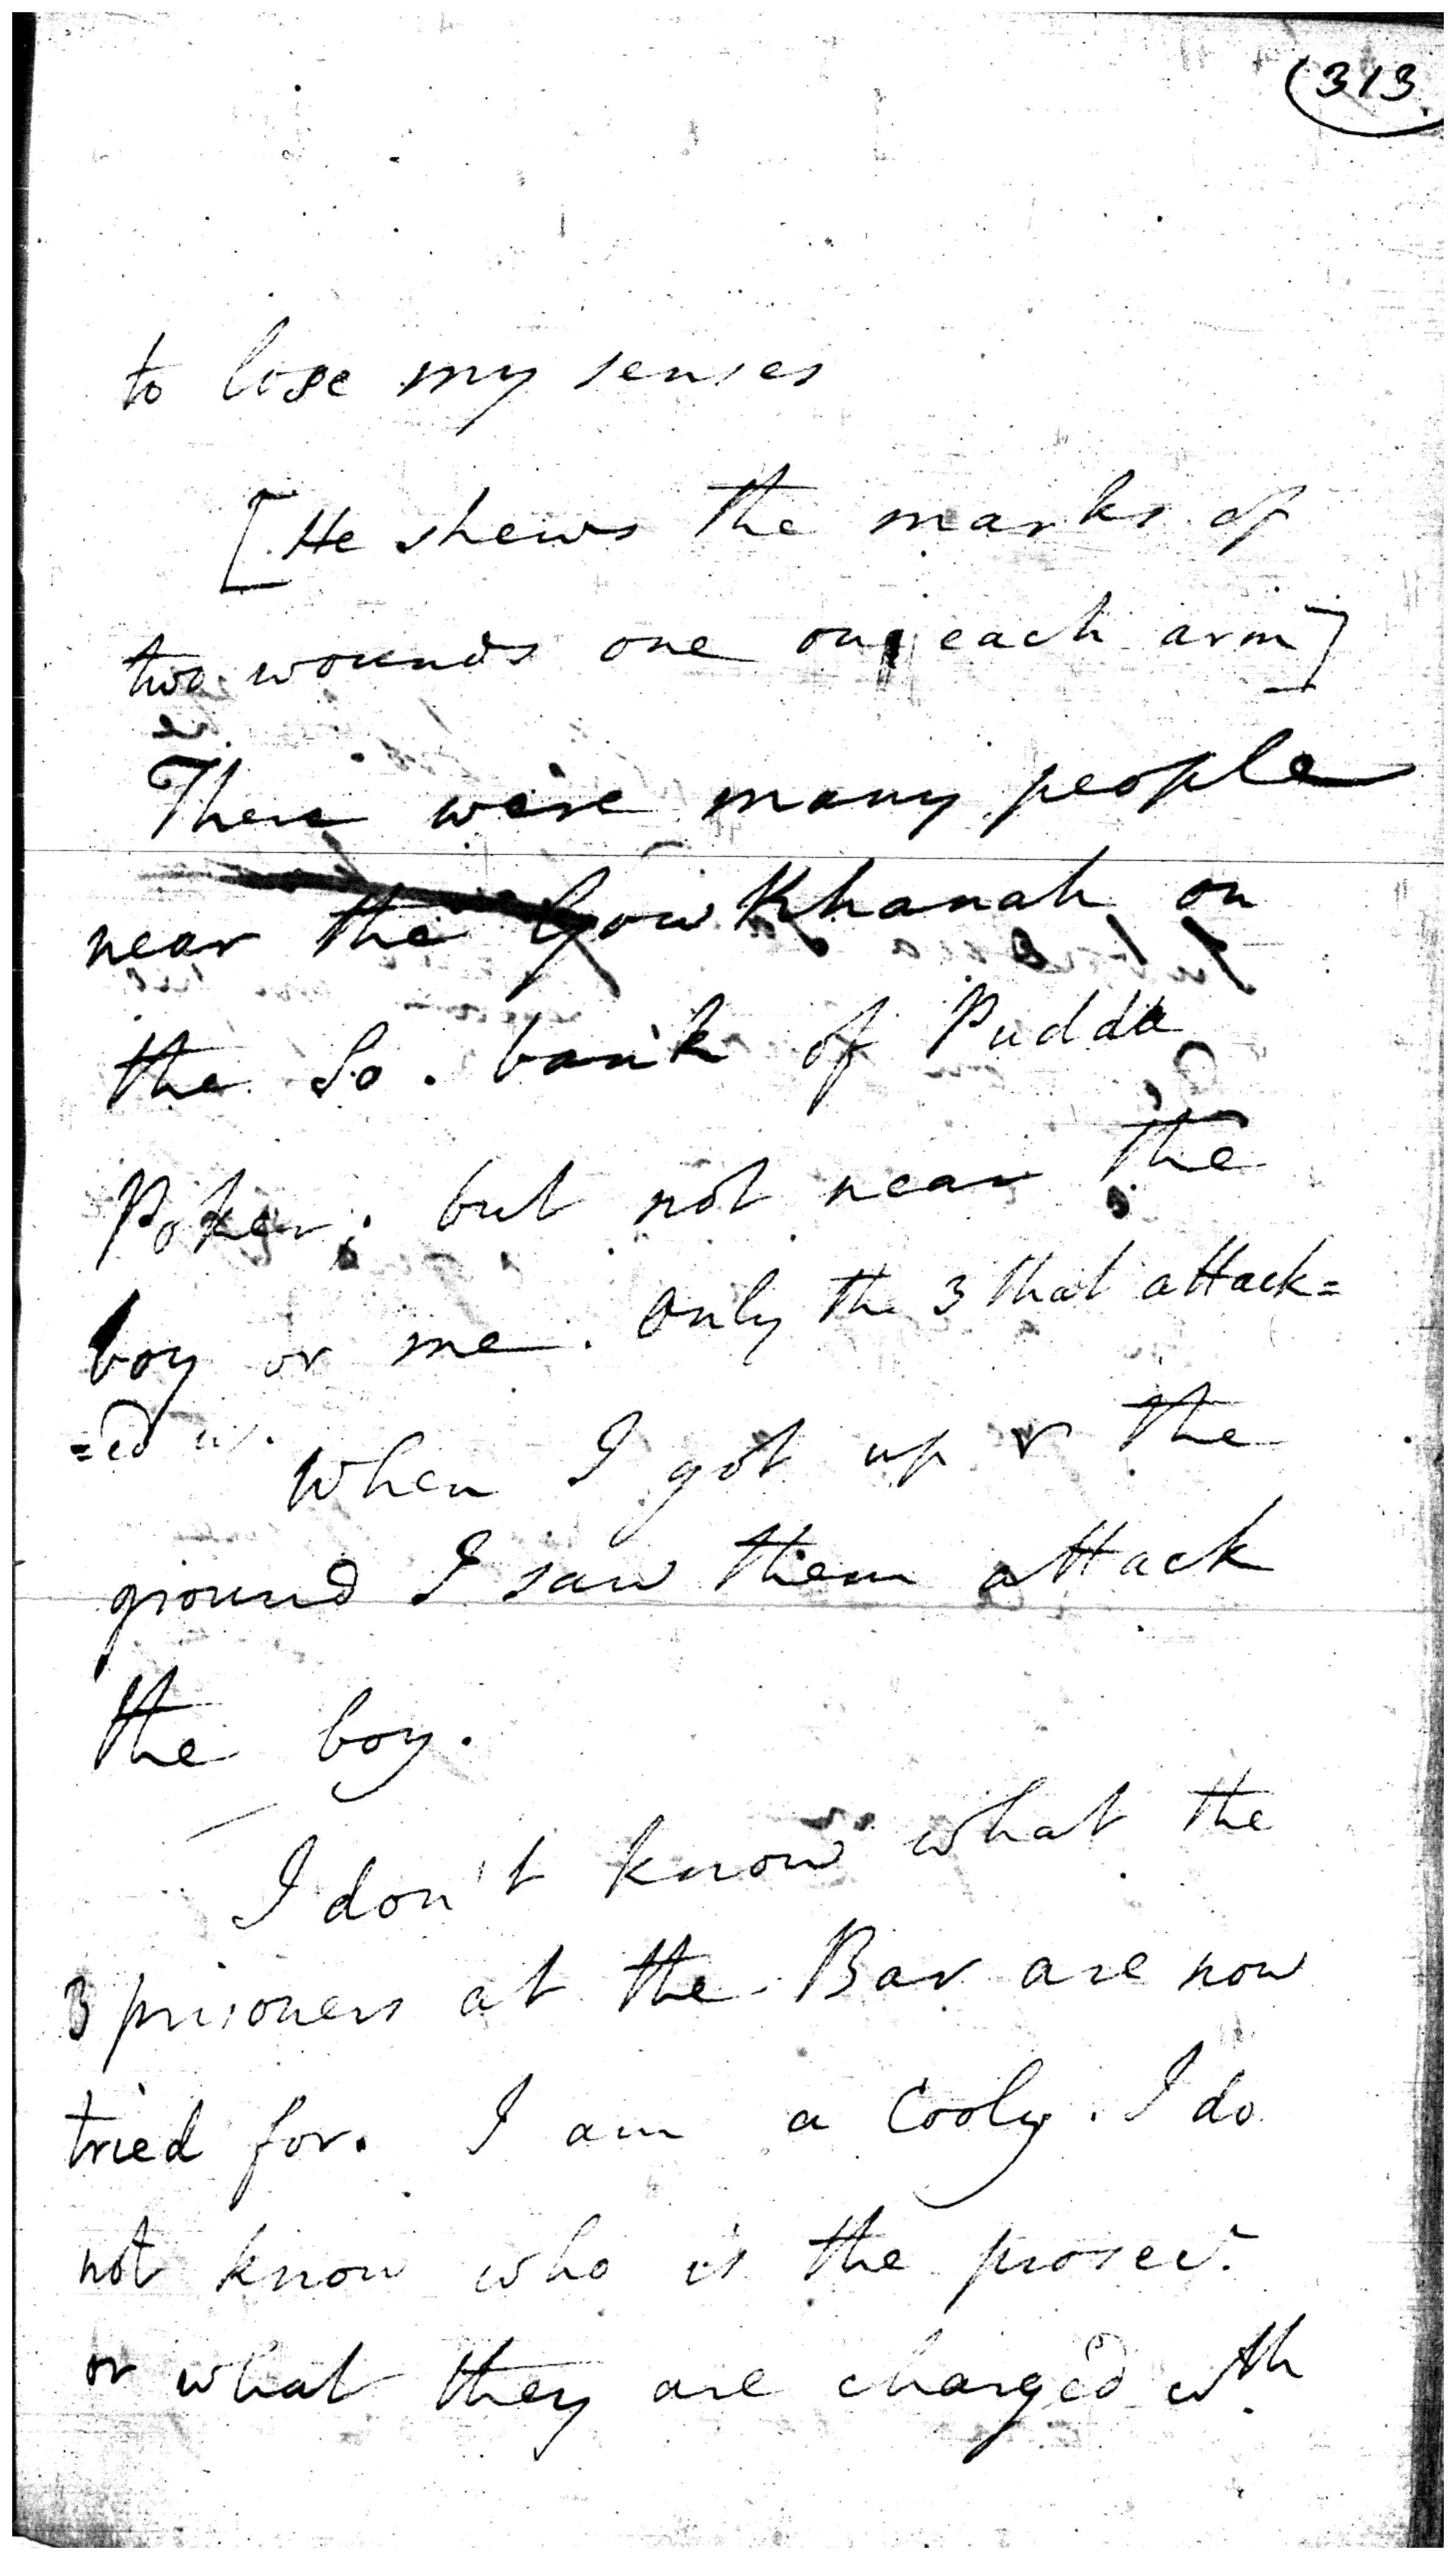 (313.
to lose my senses
[He shews the marks of
two wounds one on each arm]
There were many people
near the Gow Khanah on
the So. bank of Pudda
Poker; but not near the
boy or me. only the 3 that attack=
=ed us. When I got up r the
ground I saw them attack
the boy.
I don't know what the
3 prisoners at the Bar are now
tried for. I am a Cooly. I do
not know who is the prosecr.
or what they are charged wth.